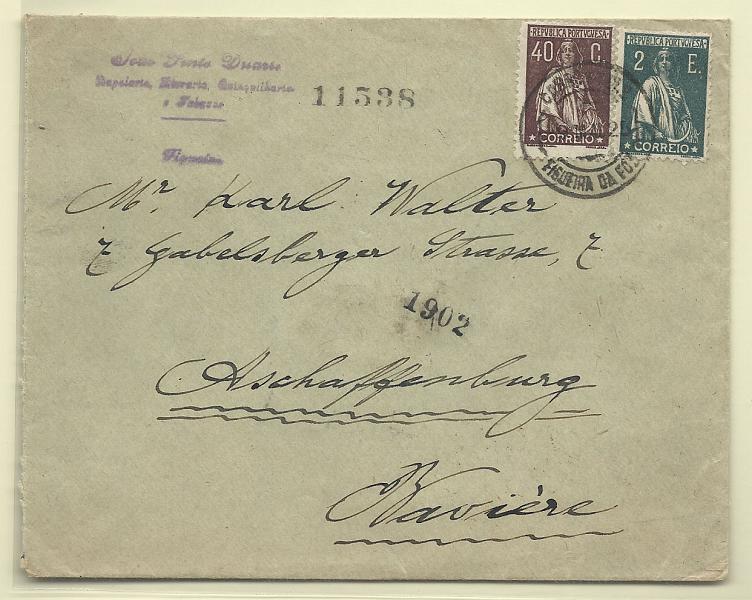 João Pinto Duarte
Papelaria, Livraria, Quinquilharia
e Tabacos
Figueira
11538
REPUBLICA PORTUGUESA
40 C.
CORREIO
REPUBLICA PORTUGUESA
2 E.
CORREIO
FIGUEIRA DA FOZ
Mr. Karl Walter
7 Gabelsberger Strasse, 7
1902
Aschaffenburg
Bavière